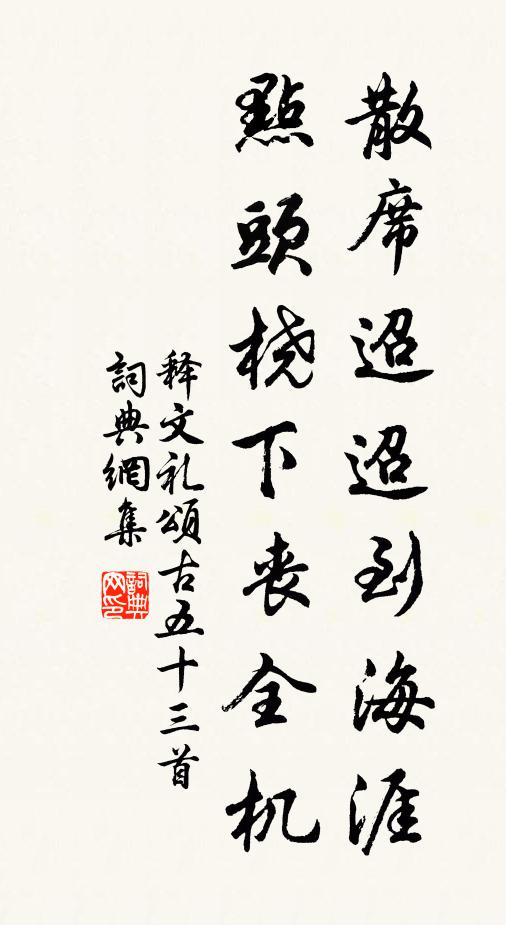 散席迢迢到海涯
點頭桡下丧全机
释文礼頌古五十三首
詞典網集
詞典
网印